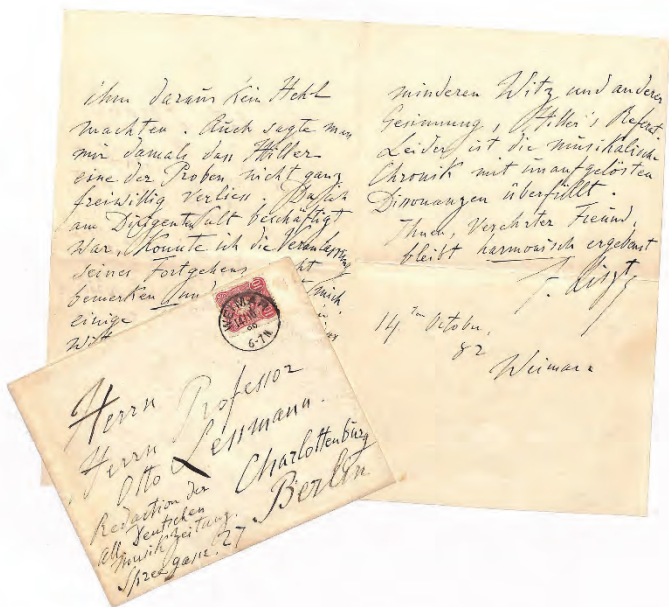 ihm daraus kein Hehl
machten. Auch sagte man
mir damals dass Hiller
eine der Proben nicht ganz
freiwillig verliess. Da ich
am Dirigentenpult beschäftigt
war, konnte ich die Veranlassung
seines Fortgehens
bemerken
einige
minderen Witz und anderer
Gesinnung, Hiller's Referat.
Leider ist die musikalische
Chronik mit unaufgelösten
Dissonanzen überfüllt.
Ihnen, Verehrter Freund,
bleibt harmonisch ergebenst
F. Liszt
14ten October,
82
Weimar.
WEIMAR
6-7N
Herrn Professor
Herrn
Otto Lessmann.
Redaction der
All. Deutschen
Musikzeitung.
Spreegasse. 27
Charlottenburg
Berlin